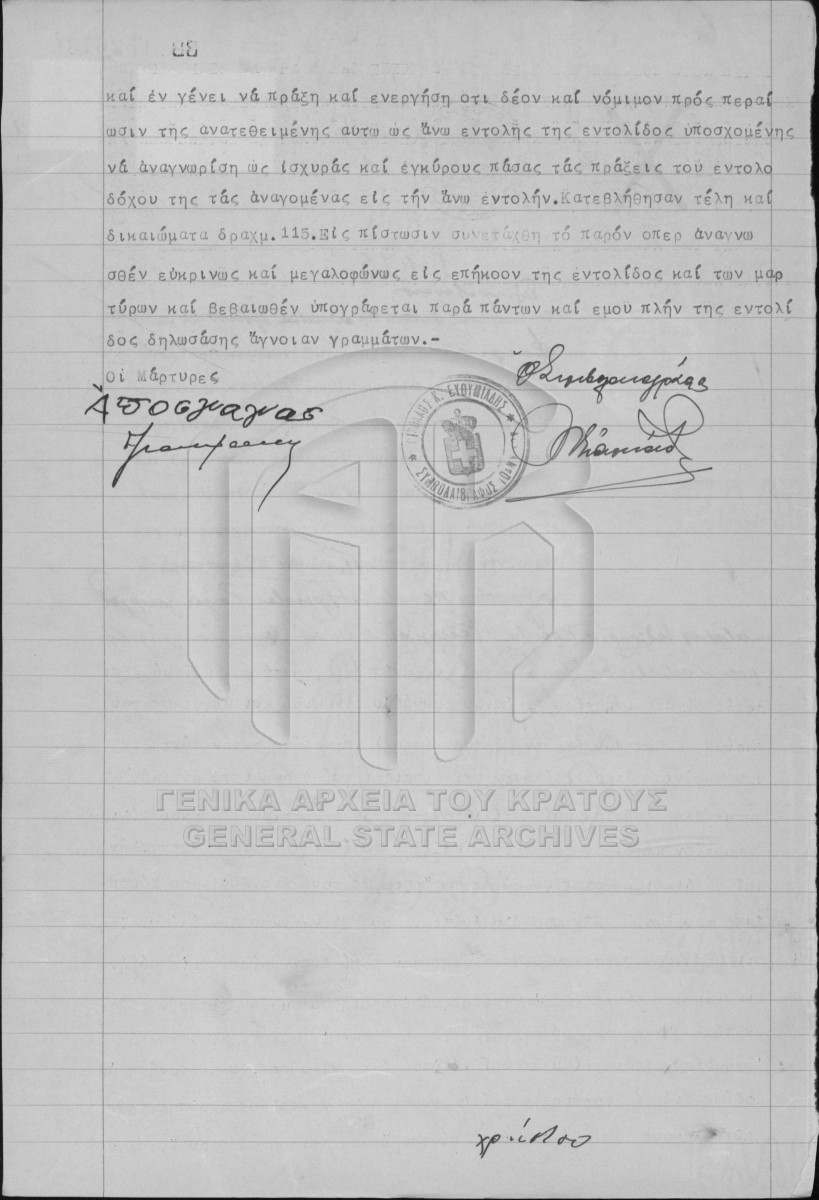 καί ἐν γένει νά πράξη καί ενεργήση οτι δέον καί νόμιμον πρός περαί
ωσιν της ανατεθειμένης αυτω ὡς ἄνω εντολης της εντολίδος ὑποσχομένης
νά ἀναγνωρίση ὡς ἰσχυράς καί ἐγκύρους πάσας τάς πράξεις του εντολο
δόχου της τάς ἀναγομένας εἰς τήν ἄνω ἐντολήν.Κατεβλήθησαν τέλη καί
δικαιώματα δραχμ.115.Εἰς πίστωσιν συνετάχθη τό παρόν οπερ ἀναγνω
σθέν εὐκρινως καί μεγαλοφώνως εἰς επήκοον της ἐντολίδος καί των μαρ
τύρων καί βεβαιωθέν ὑπογράφεται παρά πάντων καί εμου πλήν της εντολί
δος δηλωσάσης ἄγνοιαν γραμμάτων.-
Οἱ Μάρτυρες
Ὁ Συμβολαιογράφος
ΓΕΝΙΚΑ ΑΡΧΕΙΑ ΤΟΥ ΚΡΑΤΟΥΣ
GENERAL STATE ARCHIVES